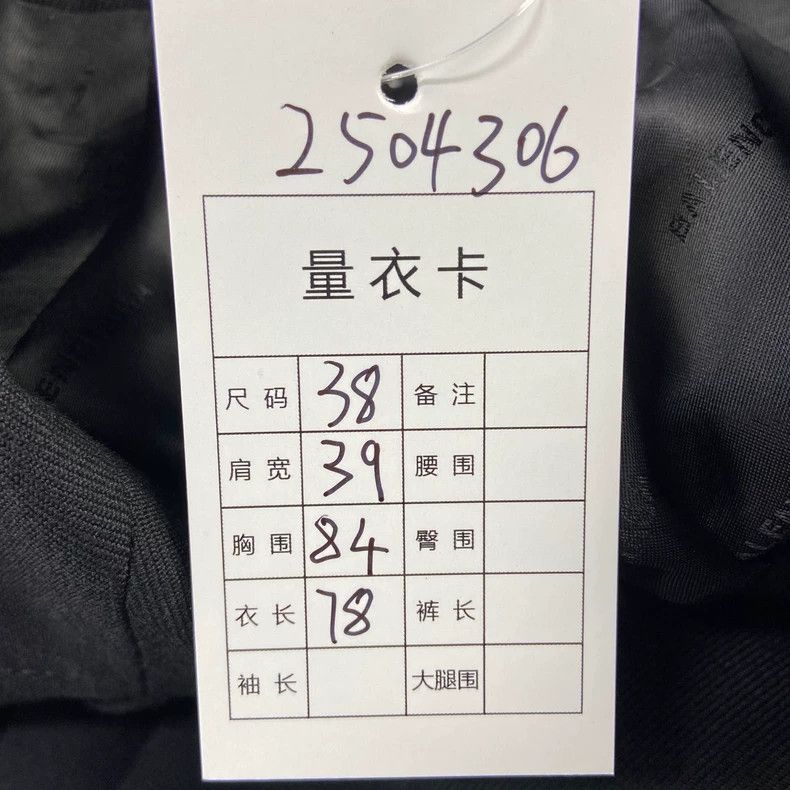 2504306
量衣卡
尺码 38 备注
肩宽 39 腰围
胸围 84 臀围
衣长 78 裤长
袖长 大腿围